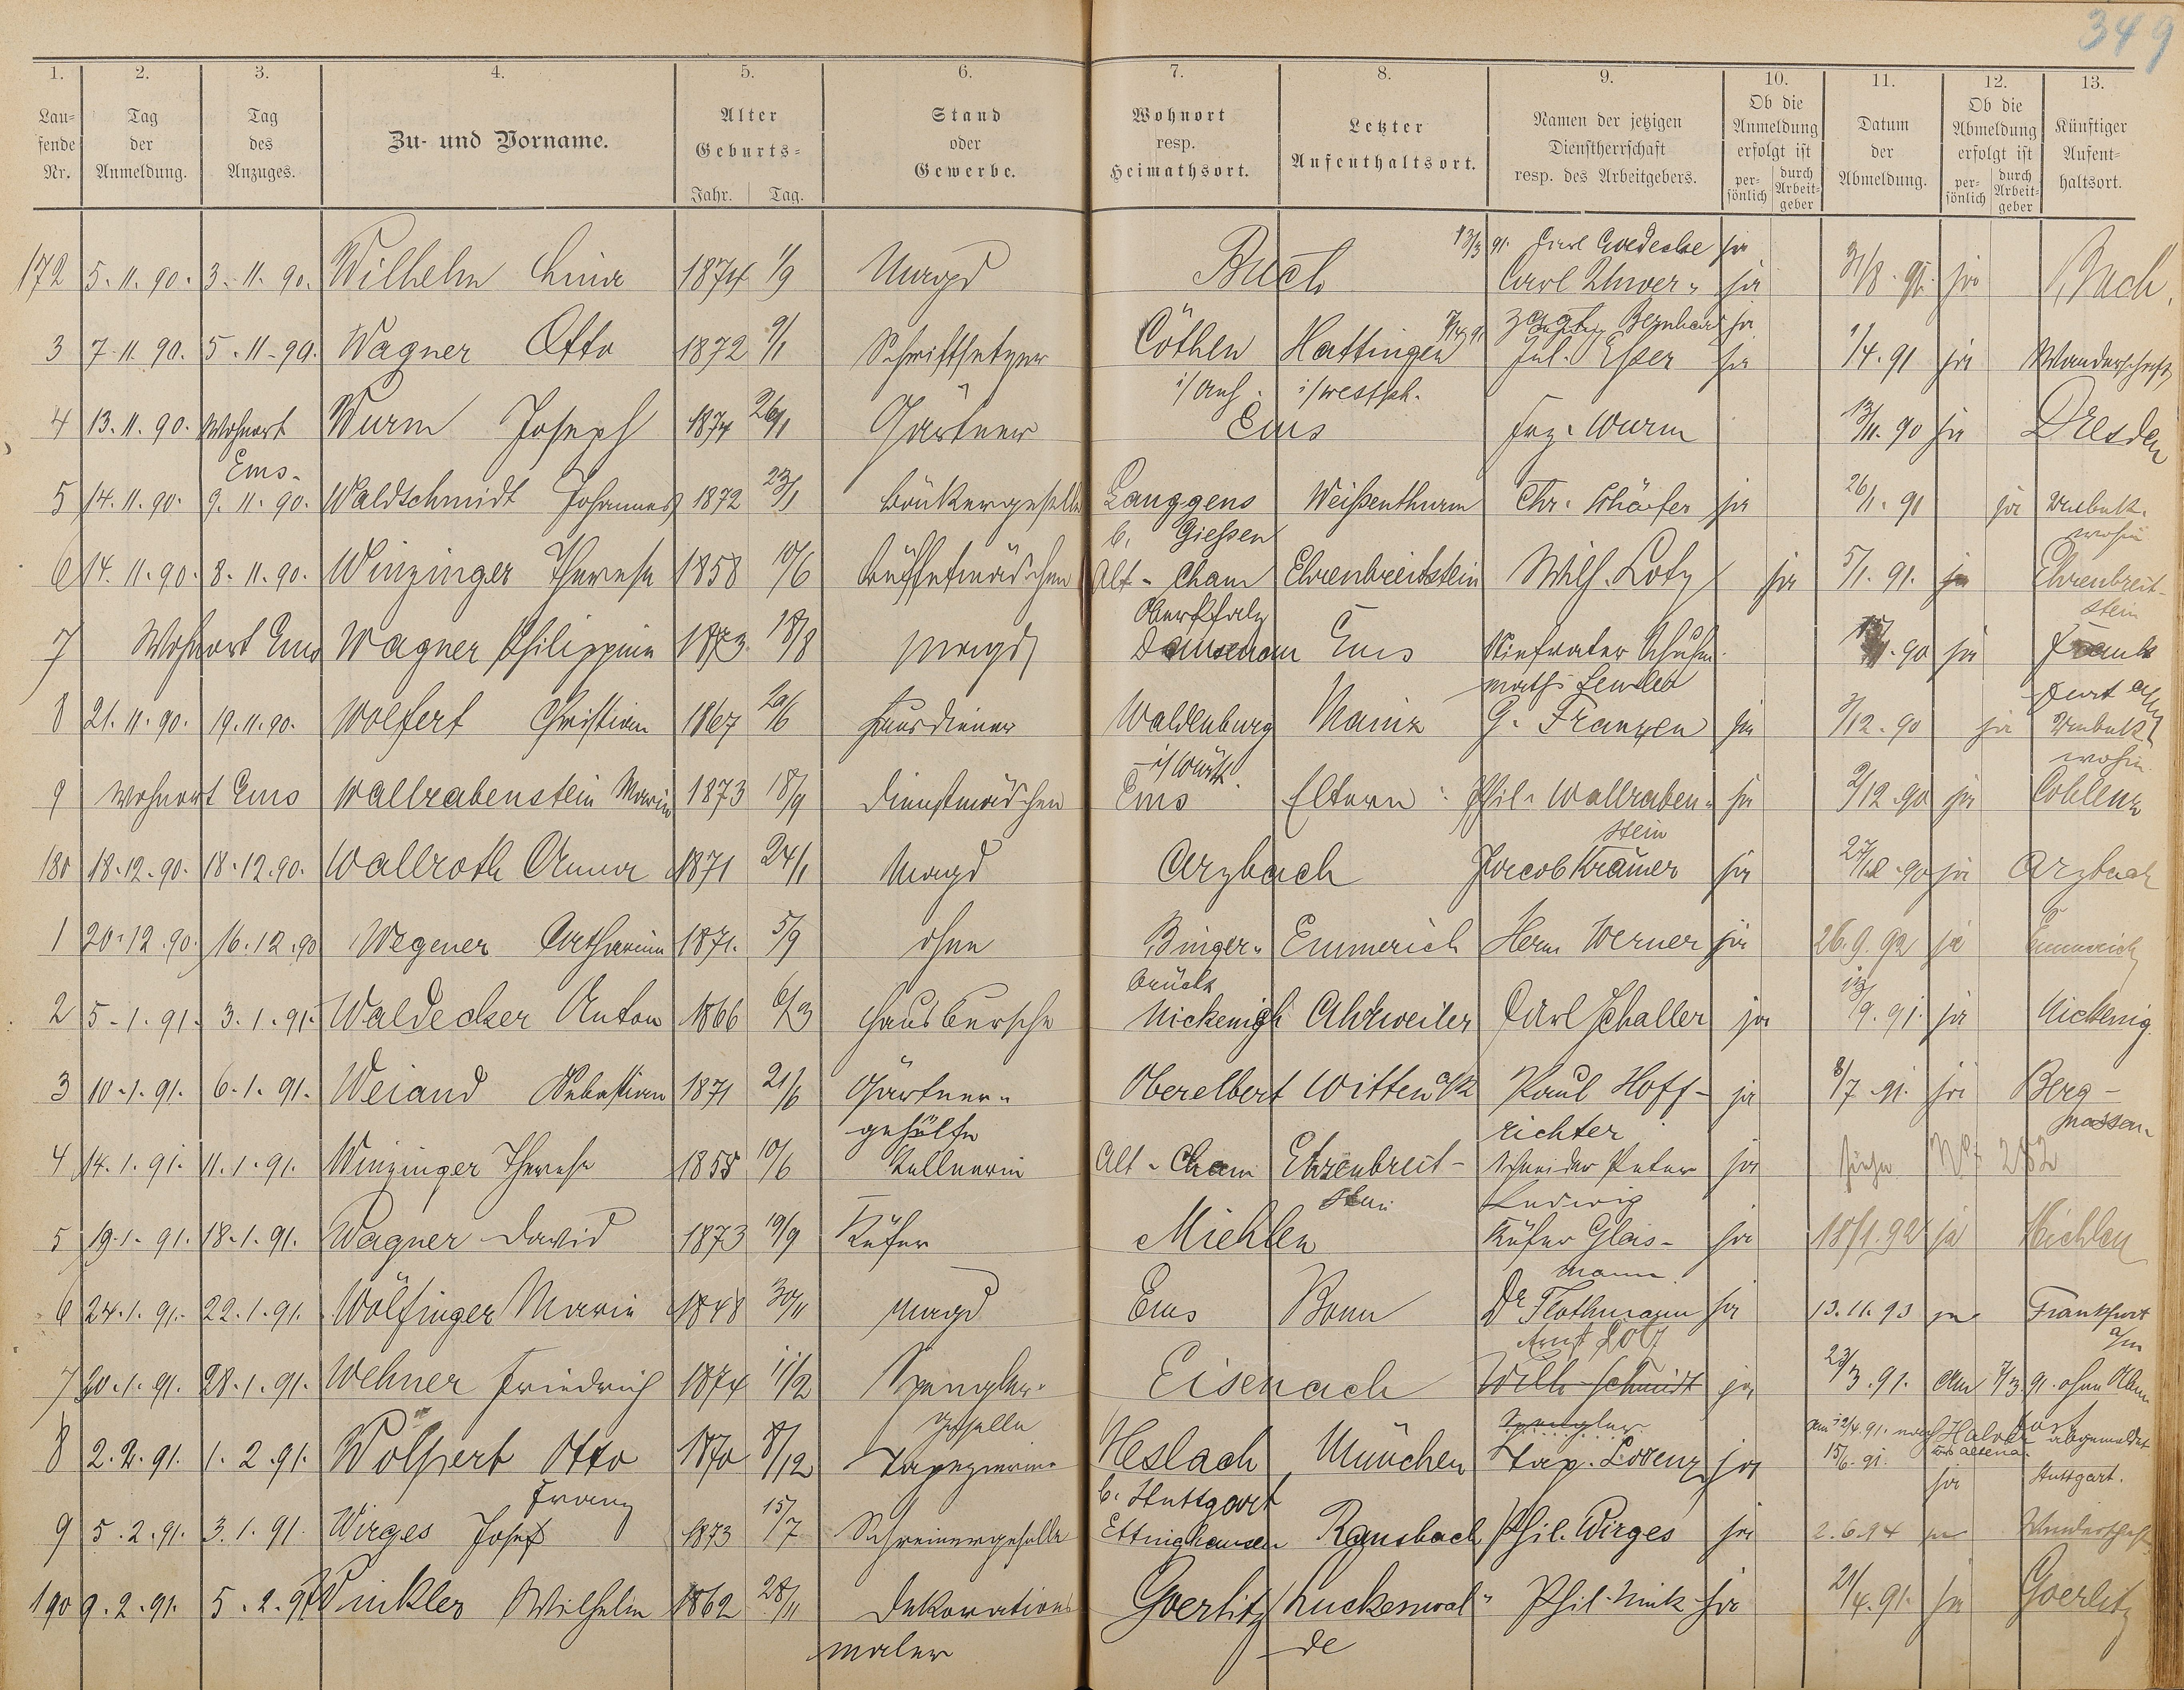 349
1. 2. 3. 4. 5. 6. 7. 8. 9. 10. 11. 12. 13.
Lau=
fende
Nr.
Tag
der
Anmeldung.
Tag
des
Anzuges.
Zu- und Vorname.
Alter
Geburts=
Jahr. Tag.
Stand
oder
Gewerbe.
Wohnort
resp.
Heimathsort.
Letzter
Aufenthaltsort.
Namen der jetzigen
Dienstherrschaft
resp. des Arbeitgebers.
Ob die
Anmeldung
erfolgt ist
per=
sönlich
durch
Arbeit=
geber
Datum
der
Abmeldung.
Ob die
Abmeldung
erfolgt ist
per=
sönlich
durch
Arbeit=
geber
Künftiger
Aufent=
haltsort.
13/3 91. Carl Goedecke ja
172 5. 11. 90. 3. 11. 90. Wilhelm Lina 1874 1/9 Magd Buch Carl 31/8. 91. ja Buch
Bernhard ja
3 7. 11. 90. 5. 11. 90. Wagner Otto 1872 9/1 Schriftsetzer Cöthen Hattingen Jul. Esser ja 1/4. 91 ja Wanderschaft
i/Anh. i/westph.
4 13. 11. 90. Wohnort Wurm Joseph 1874 26/1 Gärtner Ems Frz. Wurm 13/11. 90 ja Dresden
Ems.
5 14. 11. 90. 9. 11. 90. Waldschmidt Johannes 1872 23/1 Bäckergeselle Langgens Weißenthurm Chr. Schäfer ja 26/1. 91 ja Unbek.
b. Gießen wohin
6 14. 11. 90. 8. 11. 90. Winzinger Therese 1858 10/6 Büffetmädchen Alt-Cham Ehrenbreitstein Wilh. Lotz ja 5/1. 91. ja Ehrenbreit-
Oberpfalz stein
7 Wohnort Ems Wagner Philippine 1873 18/8 Magd Dausenau Ems Stiefvater Schuhm. 90 ja Frank
furt a/M
8 21. 11. 90. 19. 11. 90. Wolfert Christian 1867 20/6 Hausdiener Waldenburg Mainz G. Franzen ja 3/12. 90 ja Unbek.
i/Württ. wohin
9 Wohnort Ems Wallrabenstein Marie 1873 18/9 Dienstmädchen Ems Eltern: Phil. Wallraben= ja 2/12. 90 ja Coblenz
stein
180 18. 12. 90. 18. 12. 90. Wallroth Anna 1871 24/1 Magd Arzbach Jacob Krämer ja 27/12. 90 ja Arzbach
1 20. 12. 90. 16. 12. 90 Wegener Catharina 1871. 5/9 ohne Binger= Emmerich Herm Werner ja 26. 9. 92 ja Emmerich
brück
2 5. 1. 91. 3. 1. 91. Waldecker Anton 1866 6/3 Hausbursche Nickenigh Ahrweiler Carl Schaller ja 13/9. 91. ja Nickenig.
3 10. 1. 91. 6. 1. 91. Weiand Sebastian 1871 21/6 Gärtner= Oberelbert Witten a/R Paul Hoff- ja 8/7. 91. ja Berg-
gehülfe richter nassau
4 14. 1. 91. 11. 1. 91. Winzinger Therese 1858 10/6 Kellnerin Alt-Cham Ehrenbreit- Schneider Peter ja siehe No 282
stein Ludwig
5 19. 1. 91. 18. 1. 91. Wagner David 1873 19/9 Küfer Miehlen Küfer Glas- ja 18/1. 92 ja Miehlen
mann
6 24. 1. 91. 22. 1. 91. Wölfinger Marie 1848 30/11 Magd Ems Bonn Dr Flothmann ja 13. 11. 93 ja Frankfurt
a/m
7 30. 1. 91. 28. 1. 91. Wehner Friedrich 1874 11/2 Spengler= Eisenach Wilh Schmidt ja 23/3. 91. Am 7/3 91. ohne Abm
geselle Spengler am 12/4. 91. nach abgemeldet
8 2. 2. 91. 1. 2. 91. Wolpert Otto 1870 8/12 Tapezierer Heslach München Tap. Lorenz ja 15/6. 91. ja Stuttgart.
Franz b. Stuttgart
9 5. 2. 91. 3. 1. 91. Wirges Josef 1873 15/7 Schreinergeselle Ettinghausen Ransbach Phil. Wirges ja 2. 6. 94 ja Wanderschaft
190 9. 2. 91. 5. 2. 91 Winkler Wilhelm 1862 28/11 Dekorations Goerlitz Luckenwal= Phil. Nink ja 21/4. 91. ja Goerlitz
maler de